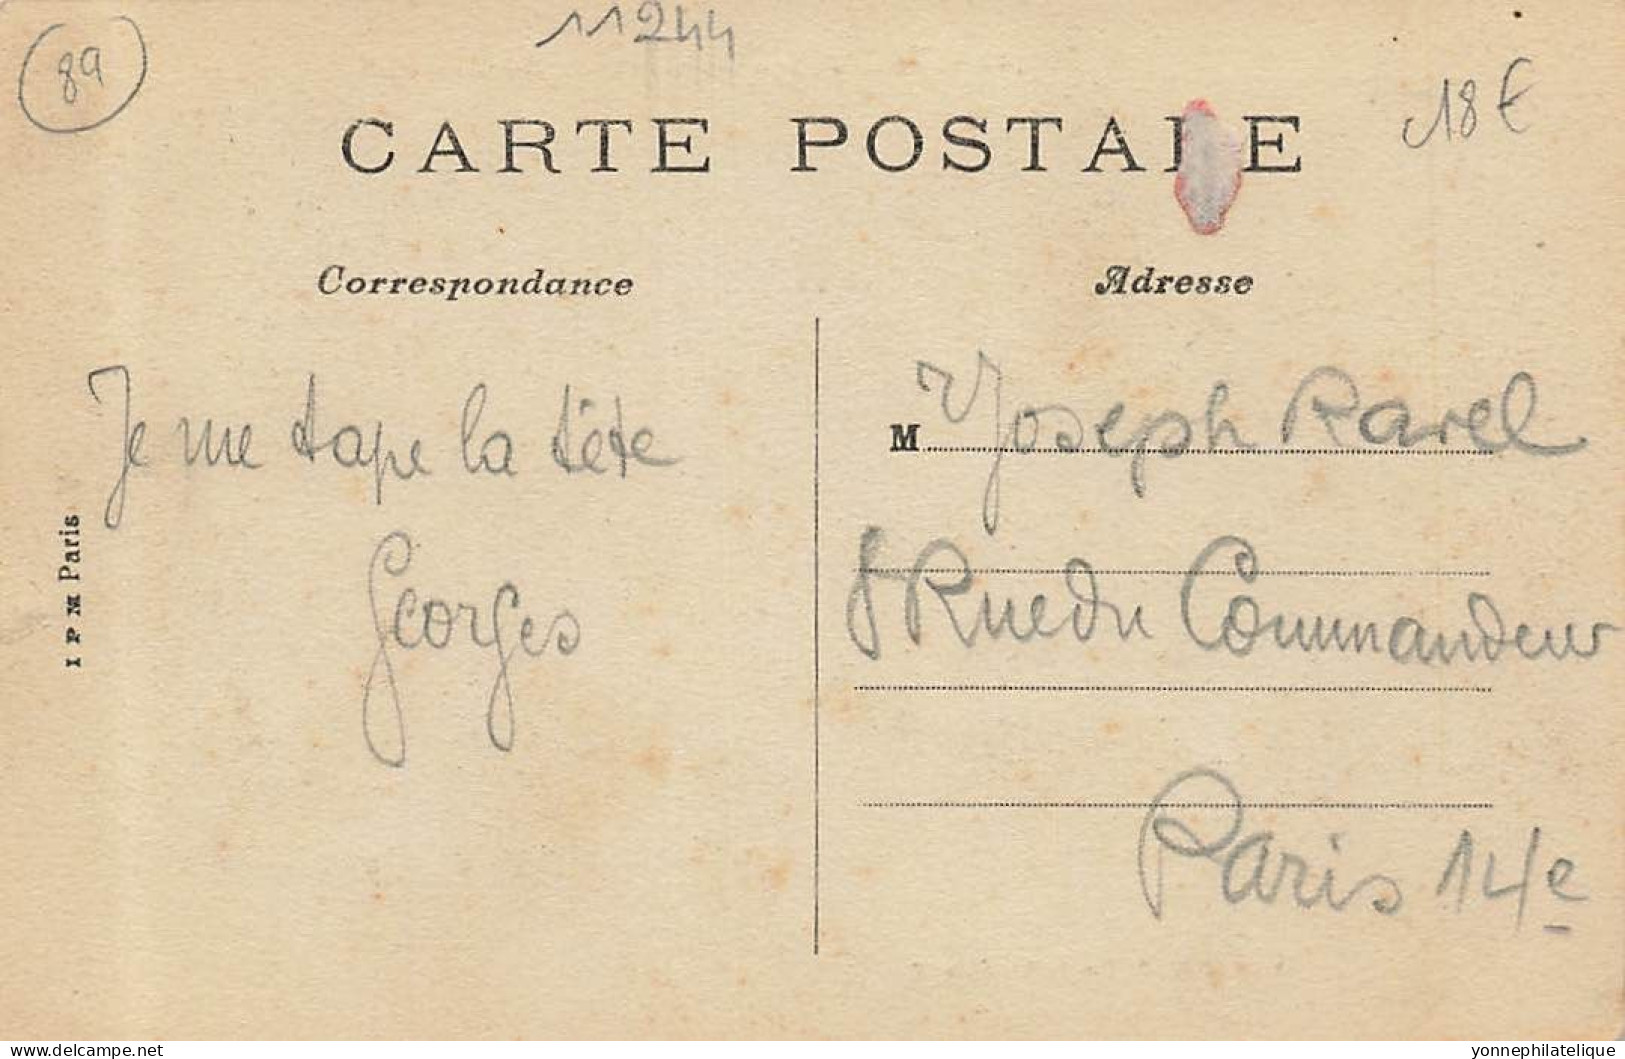 89
11244
18 €
CARTE POSTALE
Correspondance
Adresse
Je me tape la tête
Georges
I P M Paris
M Joseph Ravel
8 Rue du Commandeur
Paris 14e
delcampe.net
yonnephilatelique